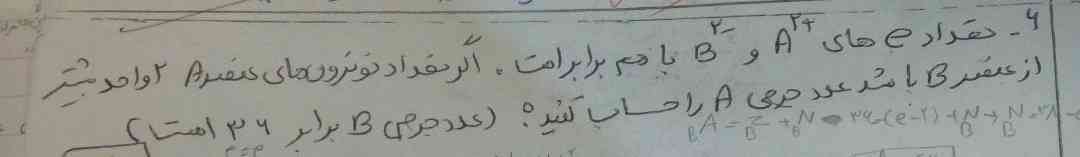 ۶- تعداد e های A²⁺ و B²⁻ با هم برابر است. اگر تعداد نوترون‌های عنصر A ۲ واحد بیشتر
از عنصر B باشد عدد جرمی A را حساب کنید؟ (عدد جرمی B برابر ۳۶ است)